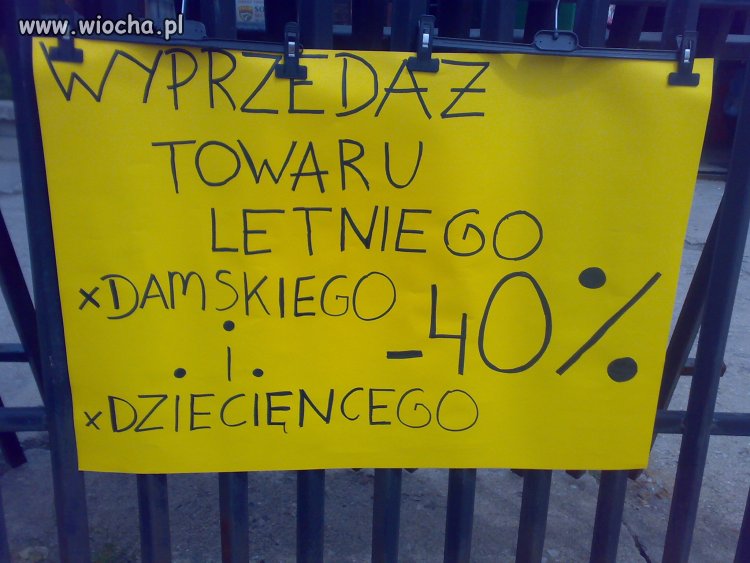 www.wiocha.pl
WYPRZEDAZ
TOWARU
LETNIEGO
xDAMSKIEGO
-40%
. i .
xDZIECIĘNCEGO